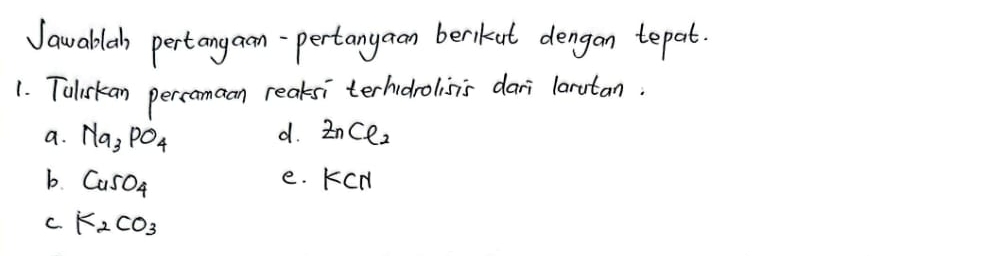 Jawablah pertanyaan - pertanyaan berikut dengan tepat.
1. Tuliskan persamaan reaksi terhidrolisis dari larutan .
a. Na₃PO₄ d. ZnCl₂
b. CuSO₄ e. KCN
c. K₂CO₃